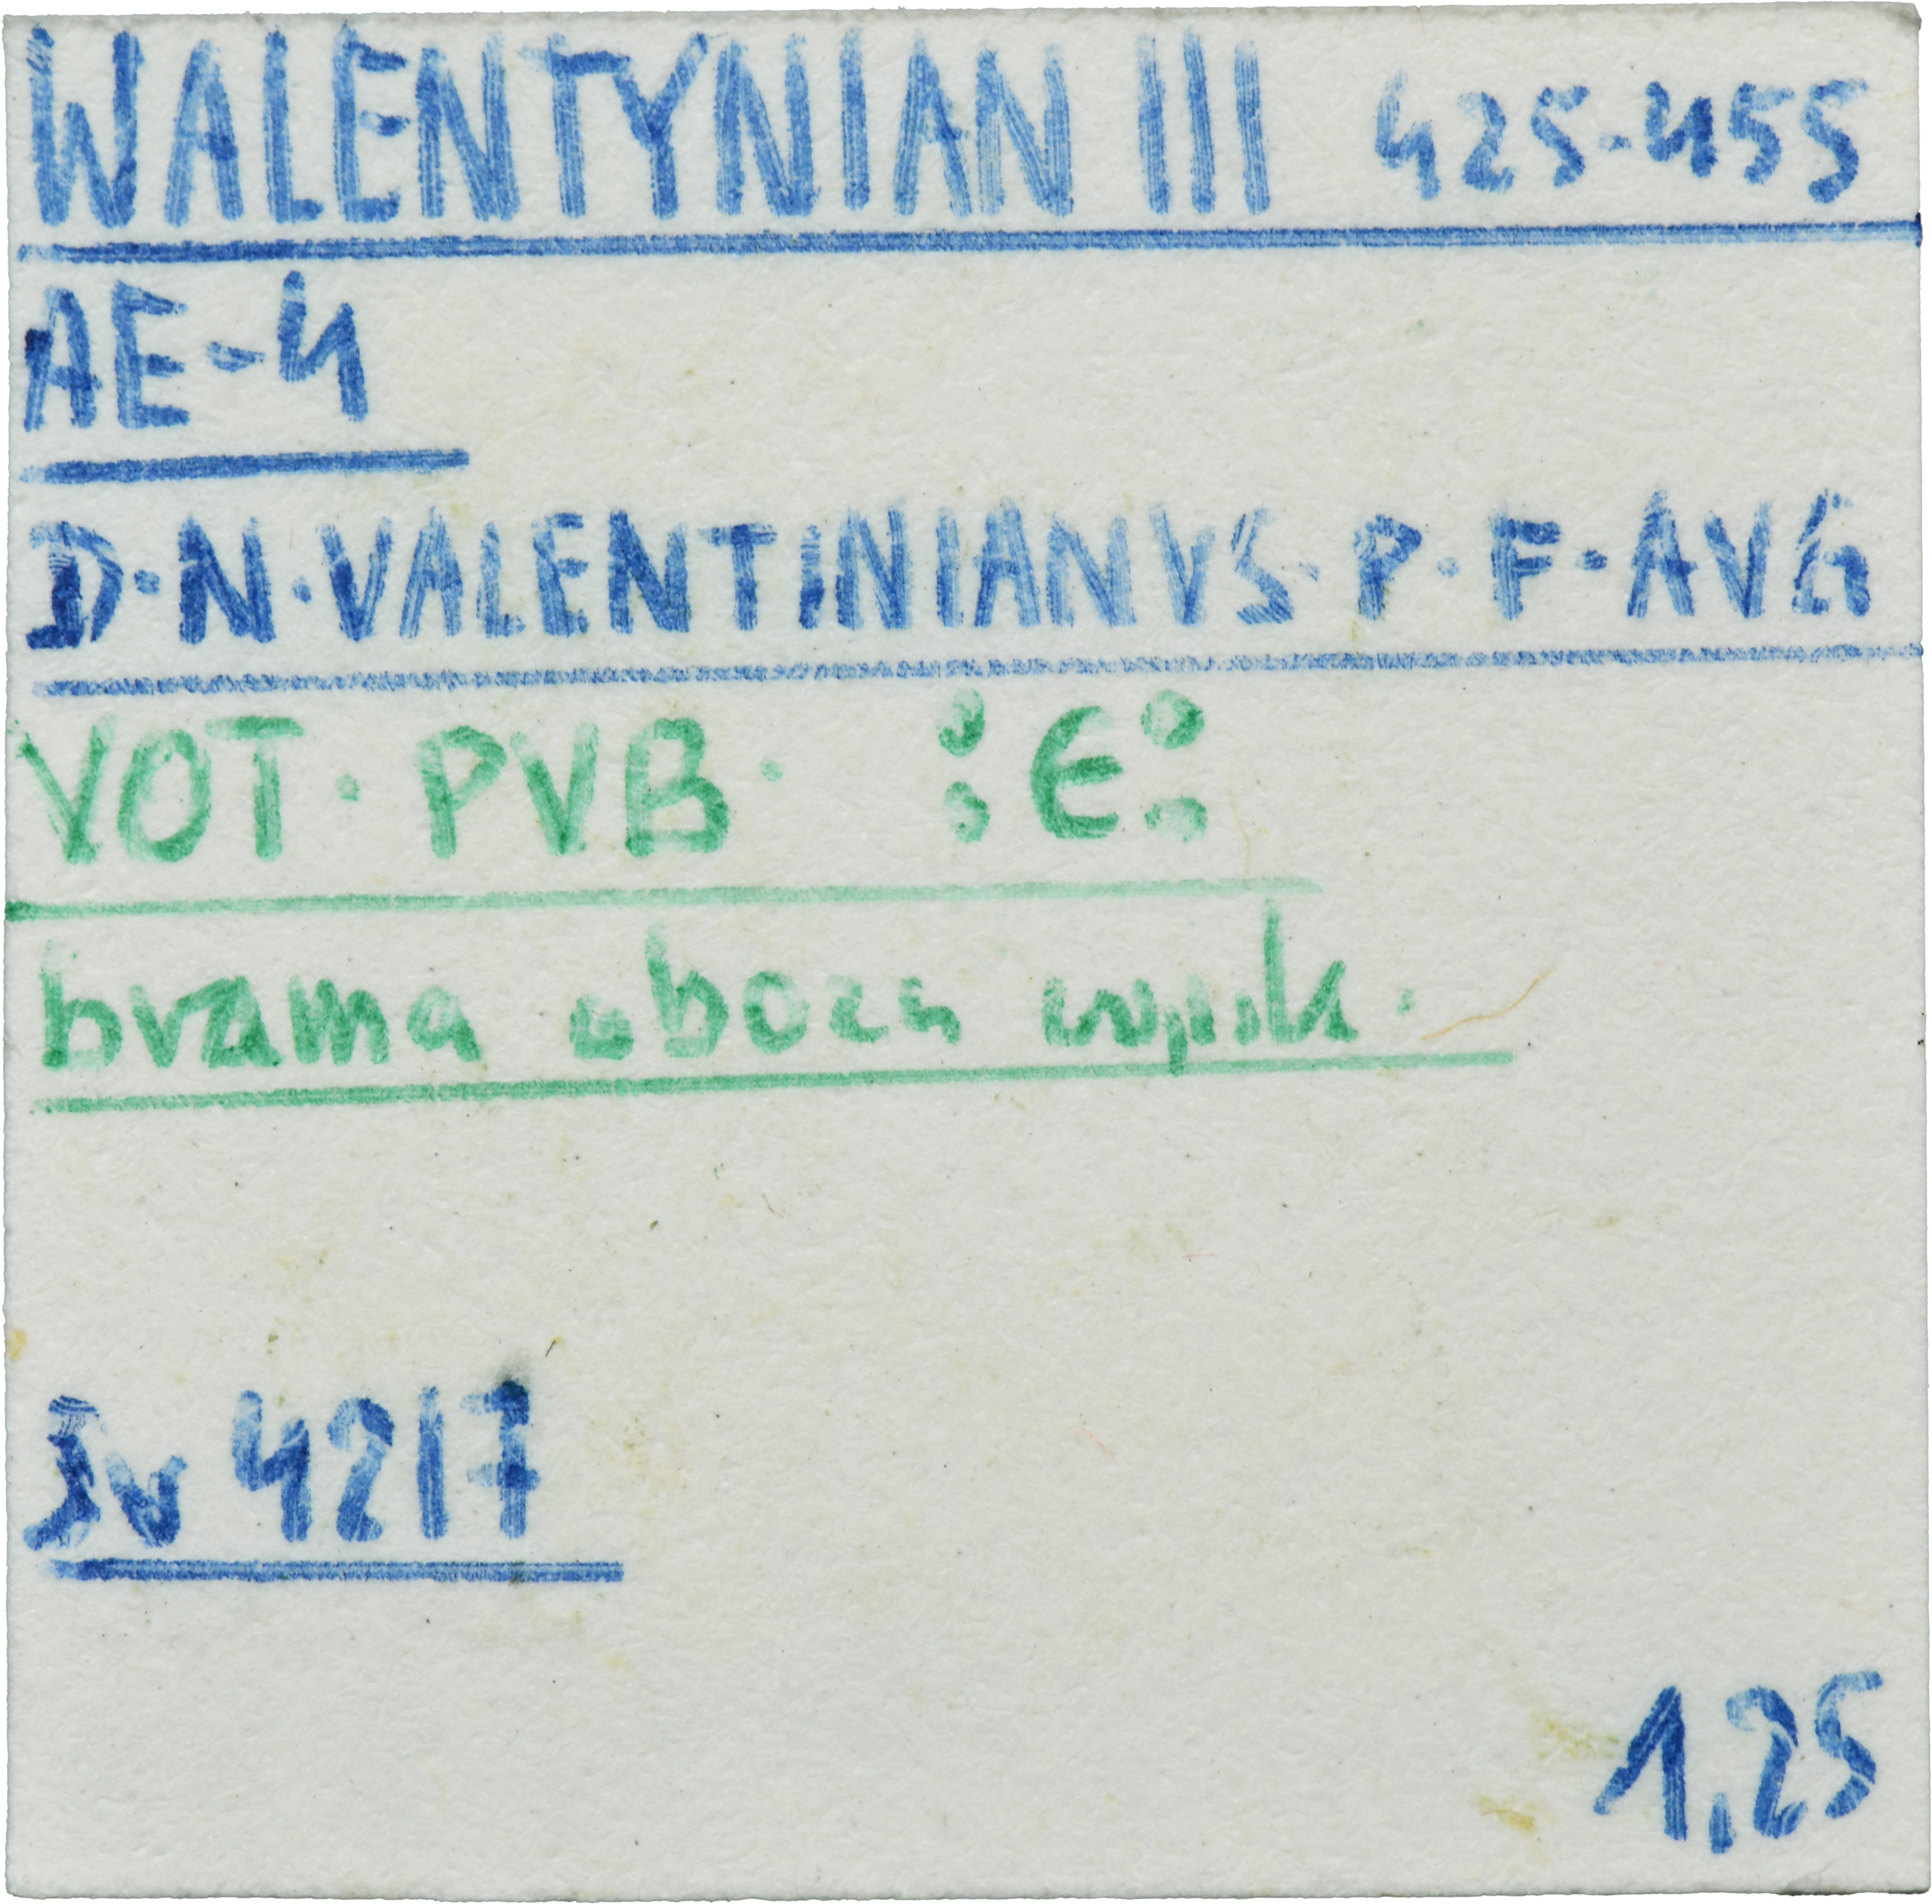 WALENTYNIAN III 425-455
AE-4
D·N·VALENTINIANVS·P·F·AVG
VOT·PVB· :Є:
brama obozu wojsk.
Sv 4217
1,25